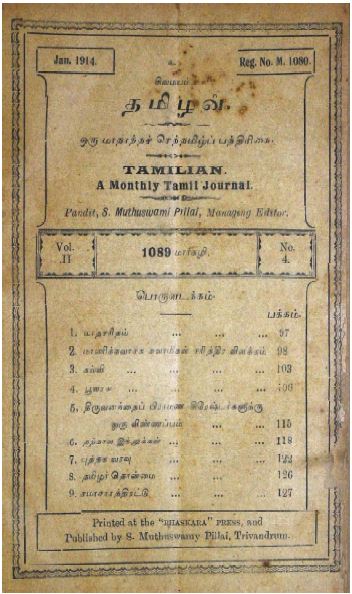 Jan. 1914.
உ
Reg. No. M. 1080.
சிவமயம்
தமிழன்.
ஒரு மாதாந்தச் செந்தமிழ்ப் பத்திரிகை.
TAMILIAN.
A Monthly Tamil Journal.
Pandit, S. Muthuswami Pillai, Managing Editor.
Vol. II
1089 மார்கழி.
No. 4.
பொருளடக்கம்.
பக்கம்.
1. மாதசரிதம் ... ... ... 97
2. மாணிக்கவாசக சுவாமிகள் சரித்திர விளக்கம் 98
3. கல்வி ... ... ... ... 103
4. ... ... ... 106
5. திருவனந்தைப் பிராமண சிரேஷ்டர்களுக்கு
ஒரு விண்ணப்பம் ... ... 115
6. தற்கால இந்துக்கள் ... ... ... 118
7. புத்தக வரவு ... ... ... 122
8. தமிழர் தொன்மை ... ... ... 126
9. சமாசாரத்திரட்டு ... ... ... 127
Printed at the "BHASKARA" PRESS, and
Published by S. Muthuswamy Pillai, Trivandrum.